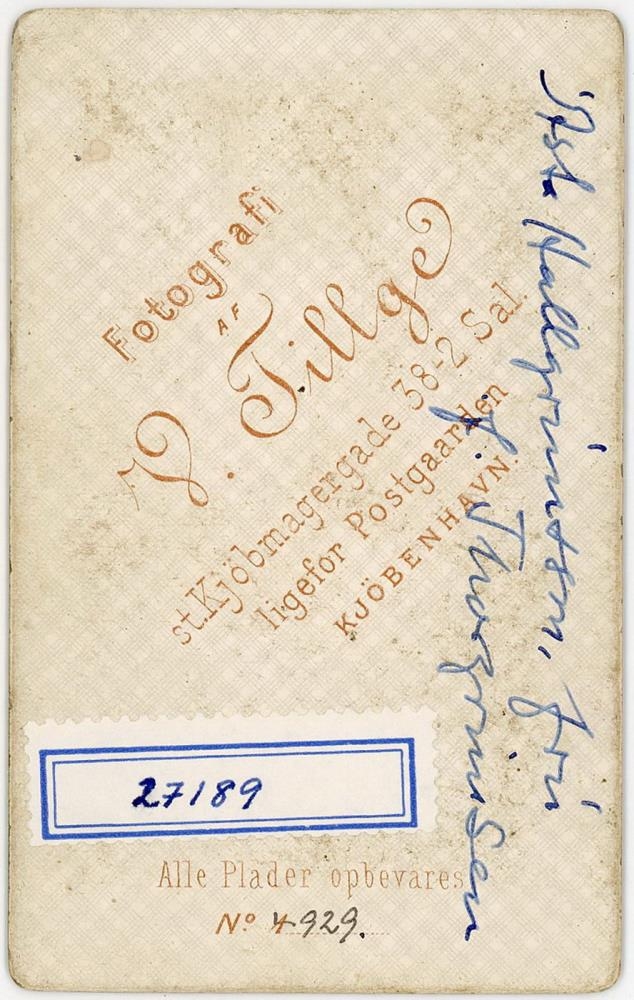 Fotografi
AF
V. Tillge
st. Kjöbmagergade 38-2 Sal.
ligefor Postgaarden
KJÖBENHAVN.
Ásta Hallgrímsson, frú
f. Thorgrimsen
27189
Alle Plader opbevares
No 4929.